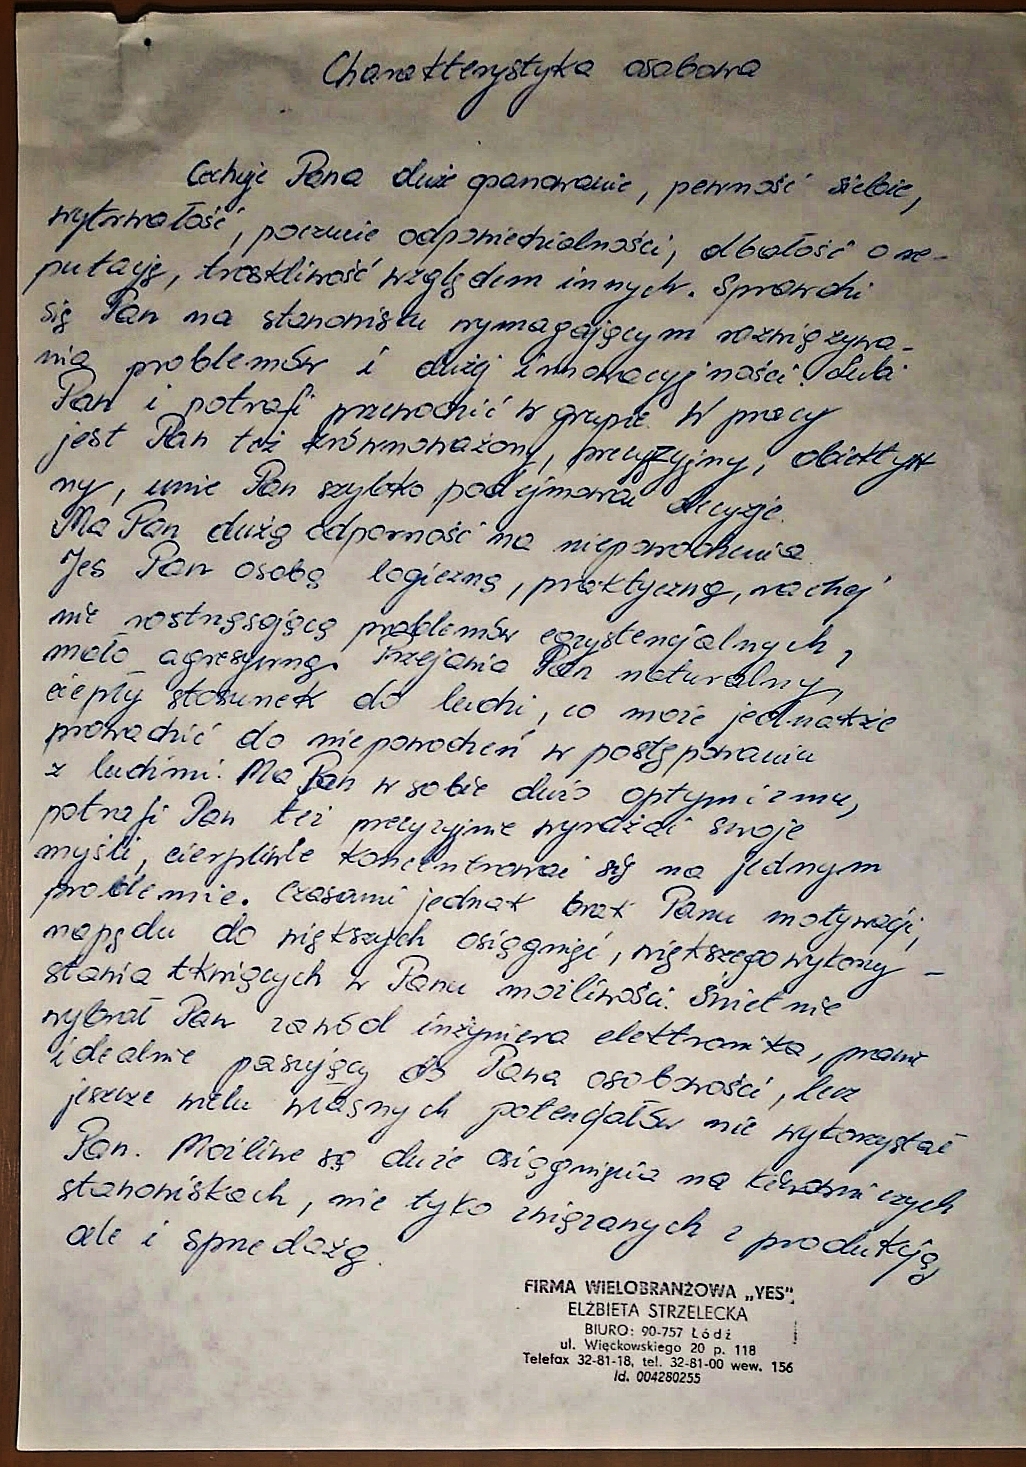 Charakterystyka osobowa
Cechuje Pana duże opanowanie, pewność siebie,
wytrwałość, poczucie odpowiedzialności, dbałość o re-
putację, troskliwość względem innych. Sprawdzi
się Pan na stanowisku wymagającym rozwiązywa-
nia problemów i dużej innowacyjności. Lubi
Pan i potrafi przewodzić w grupie. W pracy
jest Pan też zrównoważony, precyzyjny, obiektyw
ny, umie Pan szybko podejmować decyzje.
Ma Pan dużą odporność na niepowodzenia.
Jes Pan osobą logiczną, praktyczną, raczej
nie rostrząsającą problemów egzystencjalnych,
mało agresywną. Przejawia Pan naturalny,
ciepły stosunek do ludzi, co może jednakże
prowadzić do niepowodzeń w postępowaniu
z ludźmi. Ma Pan w sobie dużo optymizmu,
potrafi Pan też precyzyjnie wyrażać swoje
myśli, cierpliwie koncentrować się na jednym
problemie. Czasami jednak brak Panu motywacji,
napędu do większych osiągnięć, większego wykorzy-
stania tkwiących w Panu możliwości. Świetnie
wybrał Pan zawód inżyniera elektronika, prawie
idealnie pasujący do Pana osobowości, lecz
jeszcze wielu własnych potencjałów nie wykorzystał
Pan. Możliwe są duże osiągnięcia na kierowniczych
stanowiskach, nie tyko związanych z produkcją,
ale i sprzedażą.
FIRMA WIELOBRANŻOWA „YES"
ELŻBIETA STRZELECKA
BIURO: 90-757 Łódź
ul. Więckowskiego 20 p. 118
Telefax 32-81-18, tel. 32-81-00 wew. 156
Id. 004280255